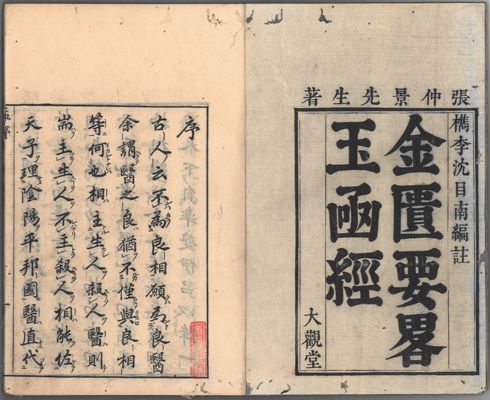 張仲景先生著
檇李沈目南編註
金匱要畧
玉函經
大觀堂
序
古人云不為良相願為良醫
余謂醫之良猶不僅與良相
等何也相主生人殺人醫則
耑主生人不主殺人相能佐
天子理陰陽平邦國醫直代